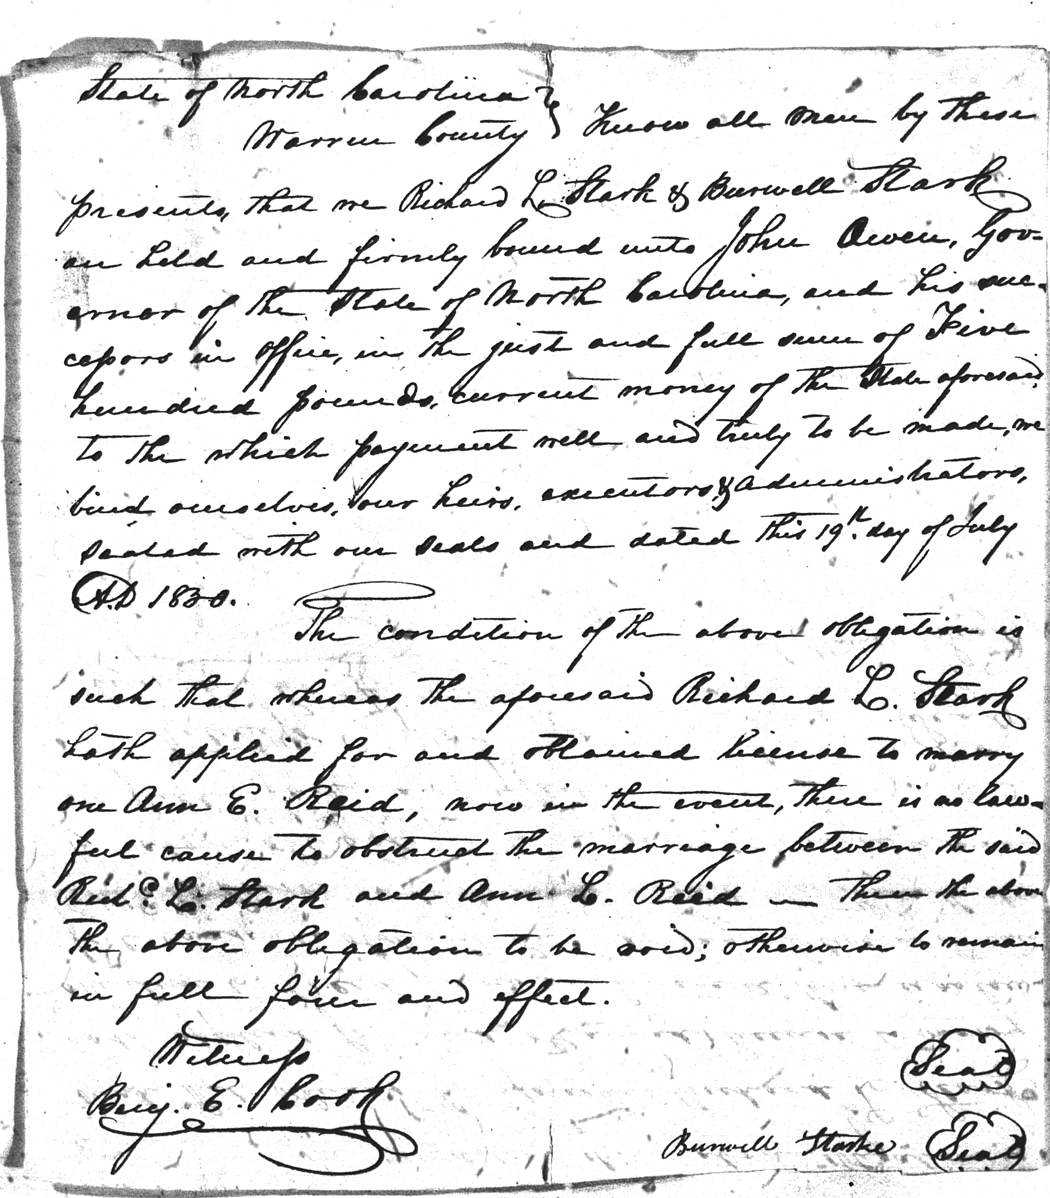 State of North Carolina }
Warren County } Know all men by these
presents, that we Richard L. Stark & Burwell Stark
are held and firmly bound unto John Owen, Gov-
ernor of the State of North Carolina, and his suc-
cessors in office, in the just and full sum of Five
hundred pounds, current money of the State aforesaid,
to the which payment well and truly to be made, we
bind ourselves, our heirs, executors, & administrators,
sealed with our seals and dated this 19th. day of July
A.D 1830.
The condition of the above obligation is
such that whereas the aforesaid Richard L. Stark
hath applied for and obtained license to marry
one Ann E. Reid, now in the event, there is no law-
ful cause to obstruct the marriage between the said
Richd. L. Stark and Ann E. Reid — then the above
the above obligation to be void; otherwise to remain
in full force and effect.
Witness
Benj. E. Cook
Seal
Burwell Starke Seal